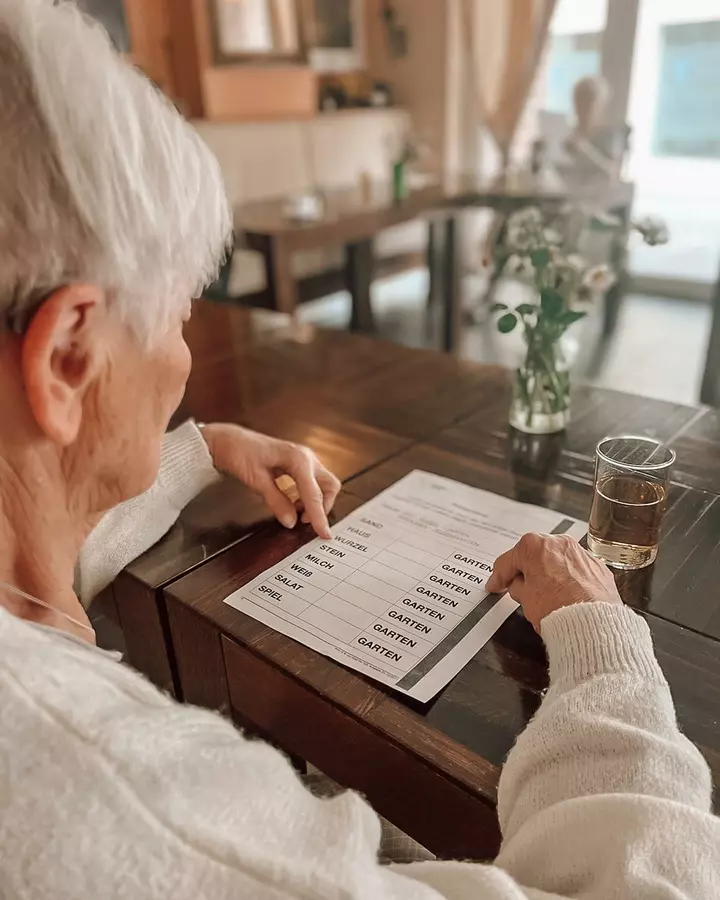 SAND GARTEN
HAUS GARTEN
WURZEL GARTEN
STEIN GARTEN
MILCH GARTEN
WEIß GARTEN
SALAT GARTEN
SPIEL GARTEN